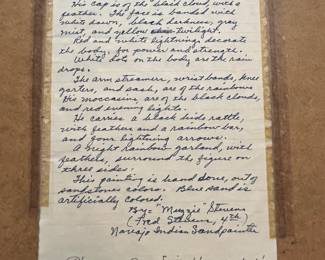 His cap is of the black cloud, with a
feather. The face is banded with
white dawn, black darkness, gray
mist, and yellow twilight.
Red and white lightning, decorate
the body, for power and strength.
White dots on the body are the rain
drops.
The arm streamers, wrist bands, knee
garters, and sash, are of the rainbows
His moccasins, are of the black clouds,
and red evening light.
He carries a black hide rattle,
with feathers and a rainbow bar,
and four lightning arrows.
A night Rainbow garland, with
feathers, surround the figure on
three sides.
This painting is hand done, out of
sandstones colors. Blue sand is
artificially colored.
By- "Muggie" Stevens
(Fred Stevens, 4th)
Navajo Indian Sandpainter